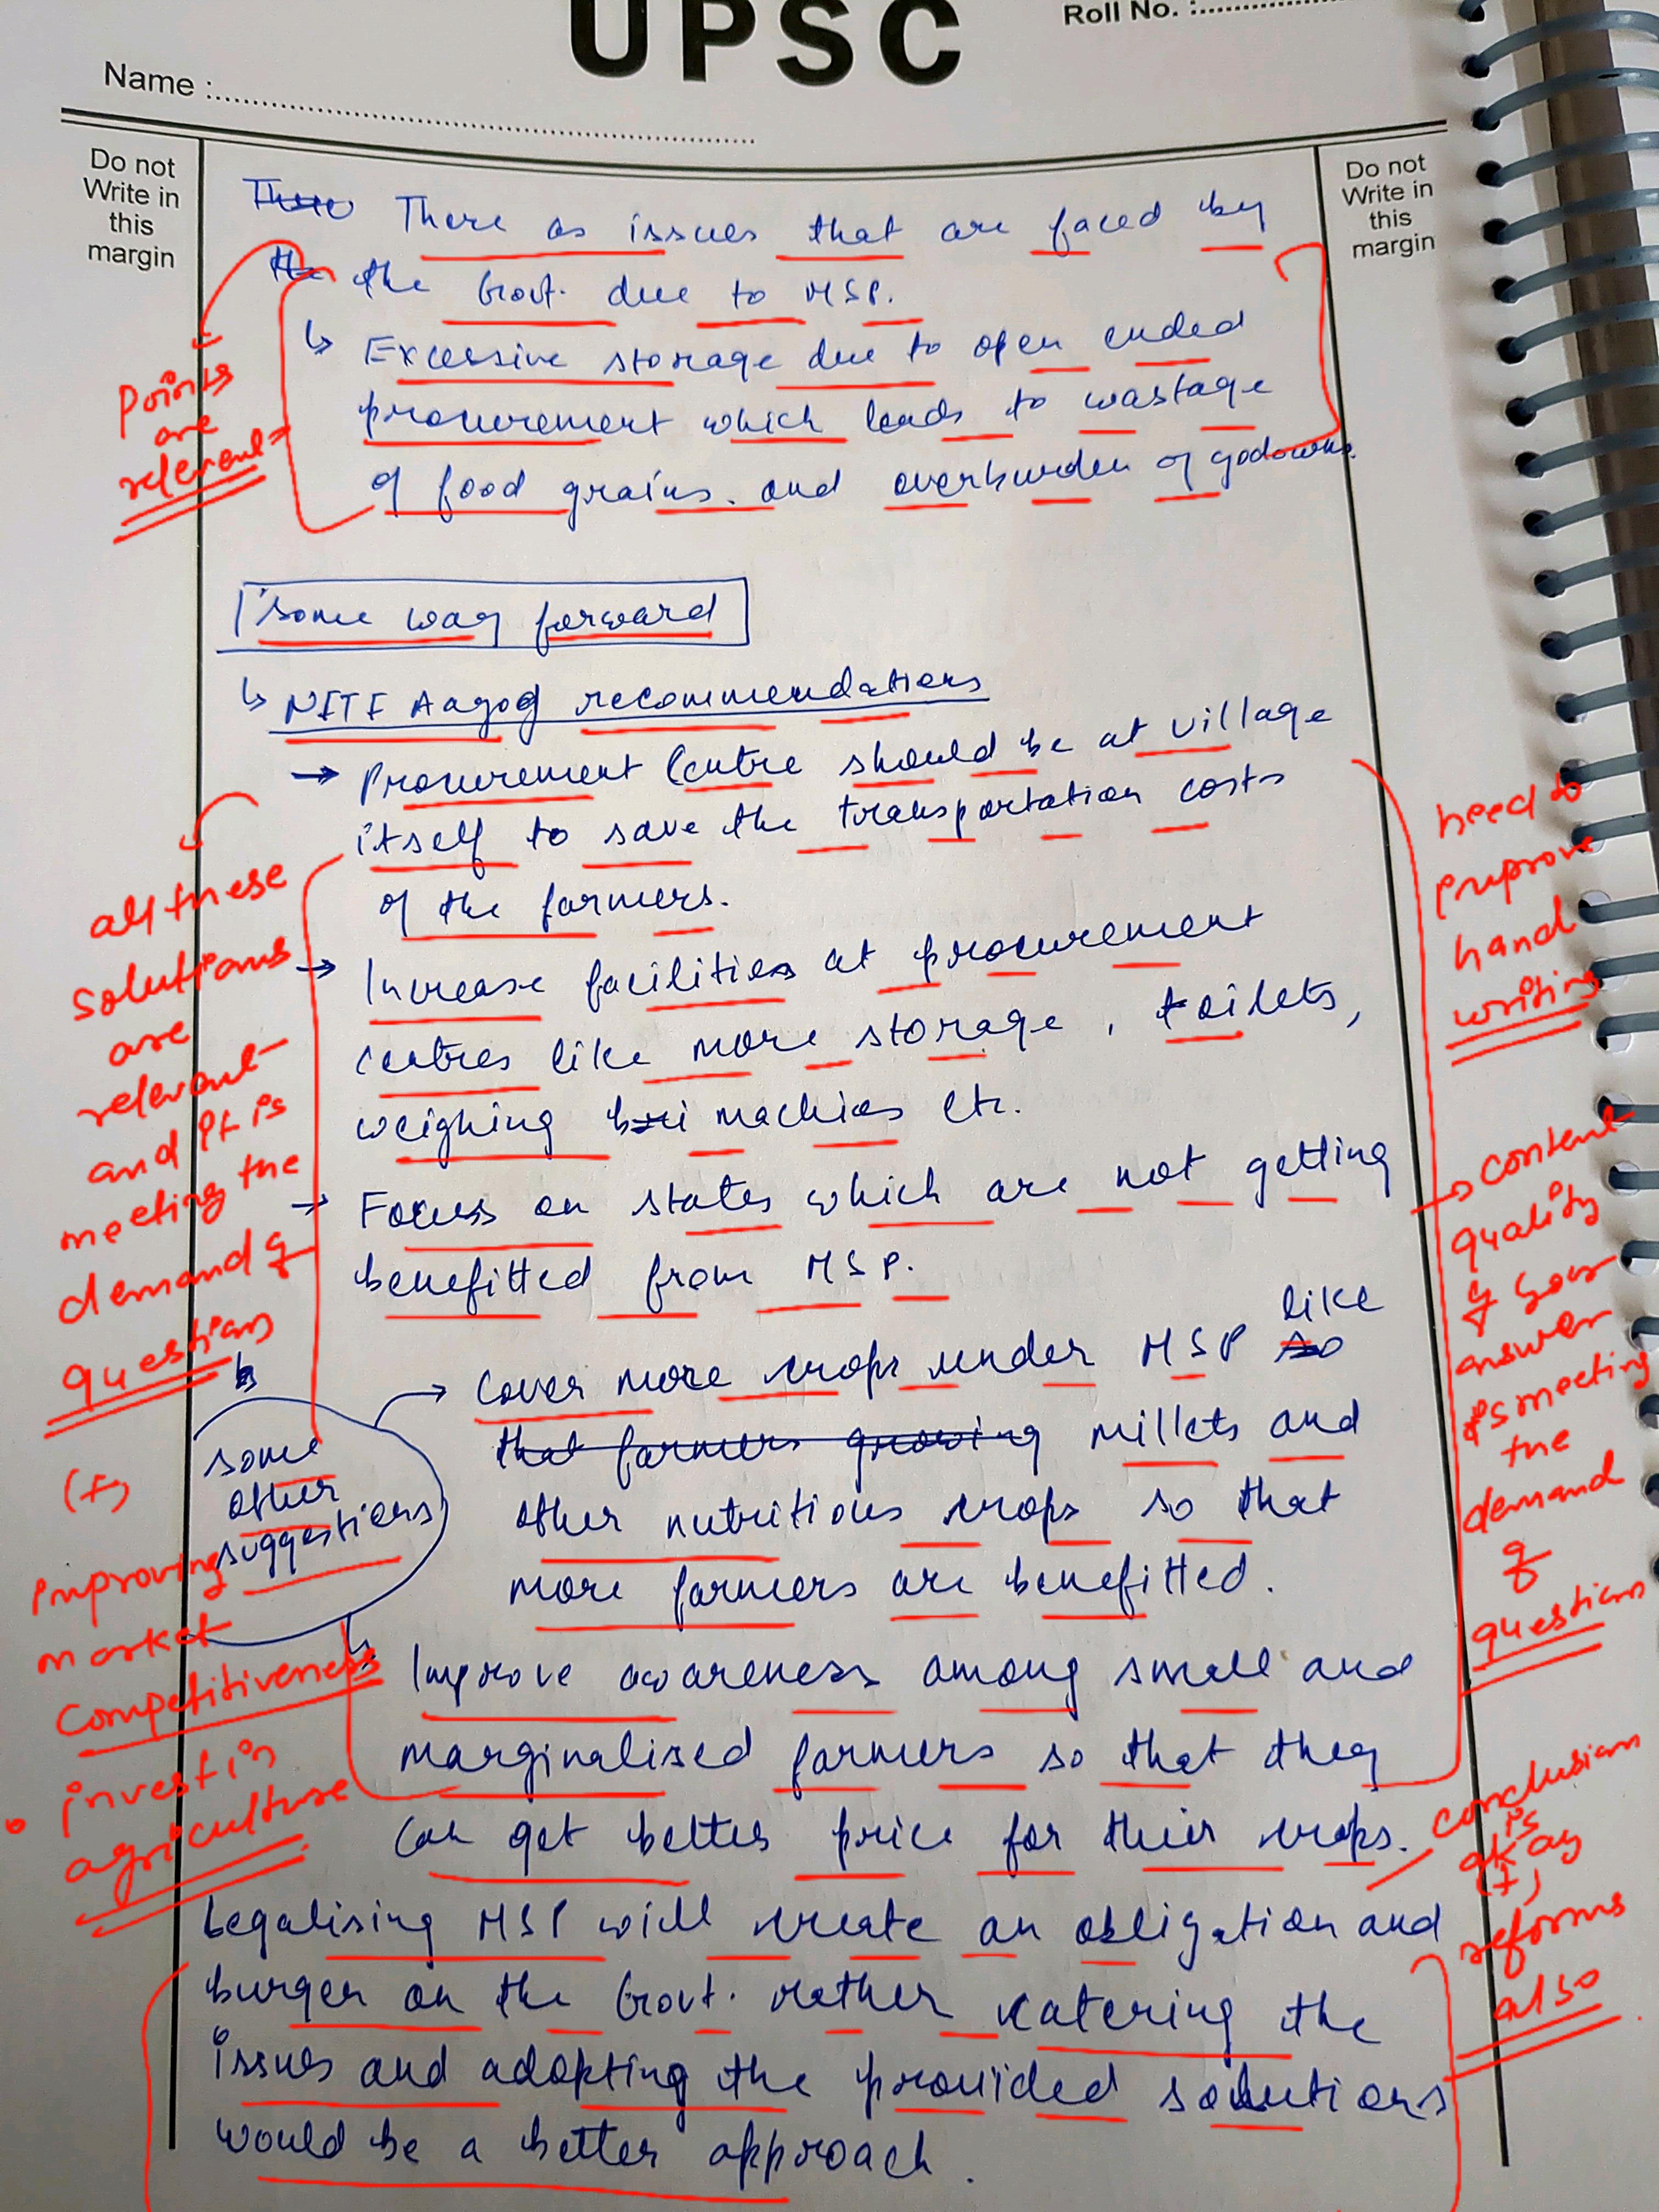 UPSC
Roll No. :
Name :
Do not
Write in
this
margin
Do not
Write in
this
margin
There There as issues that are faced by
the the Govt. due to MSP.
↳ Excessive storage due to open ended
procurement which leads to wastage
of food grains. and overburden of godowns.
Points
are
relevant
Some way forward
↳ NITI Aayog recommendations
→ Procurement Centre should be at village
itself to save the transportation costs
of the farmers.
→ Increase facilities at procurement
centres like more storage, toilets,
weighing machies etc.
→ Focus on states which are not getting
benefitted from MSP.
all these
solutions
are
relevant
and it is
meeting the
demand of
question
need to
improve
hand
writing
→ content
quality
of your
answer
is meeting
the
demand
of
question
some
other
suggestions
→ Cover more crops under MSP so like
that farmers growing millets and
other nutritious crops so that
more farmers are benefitted.
↳ Improve awareness among small and
marginalised farmers so that they
can get better price for their crops.
(+)
improving
market
Competitiveness
• invest in
agriculture
conclusion
is
okay
(+)
reforms
also
Legalising MSP will create an obligation and
burgen on the Govt. rather catering the
issues and adopting the provided solutions
would be a better approach.